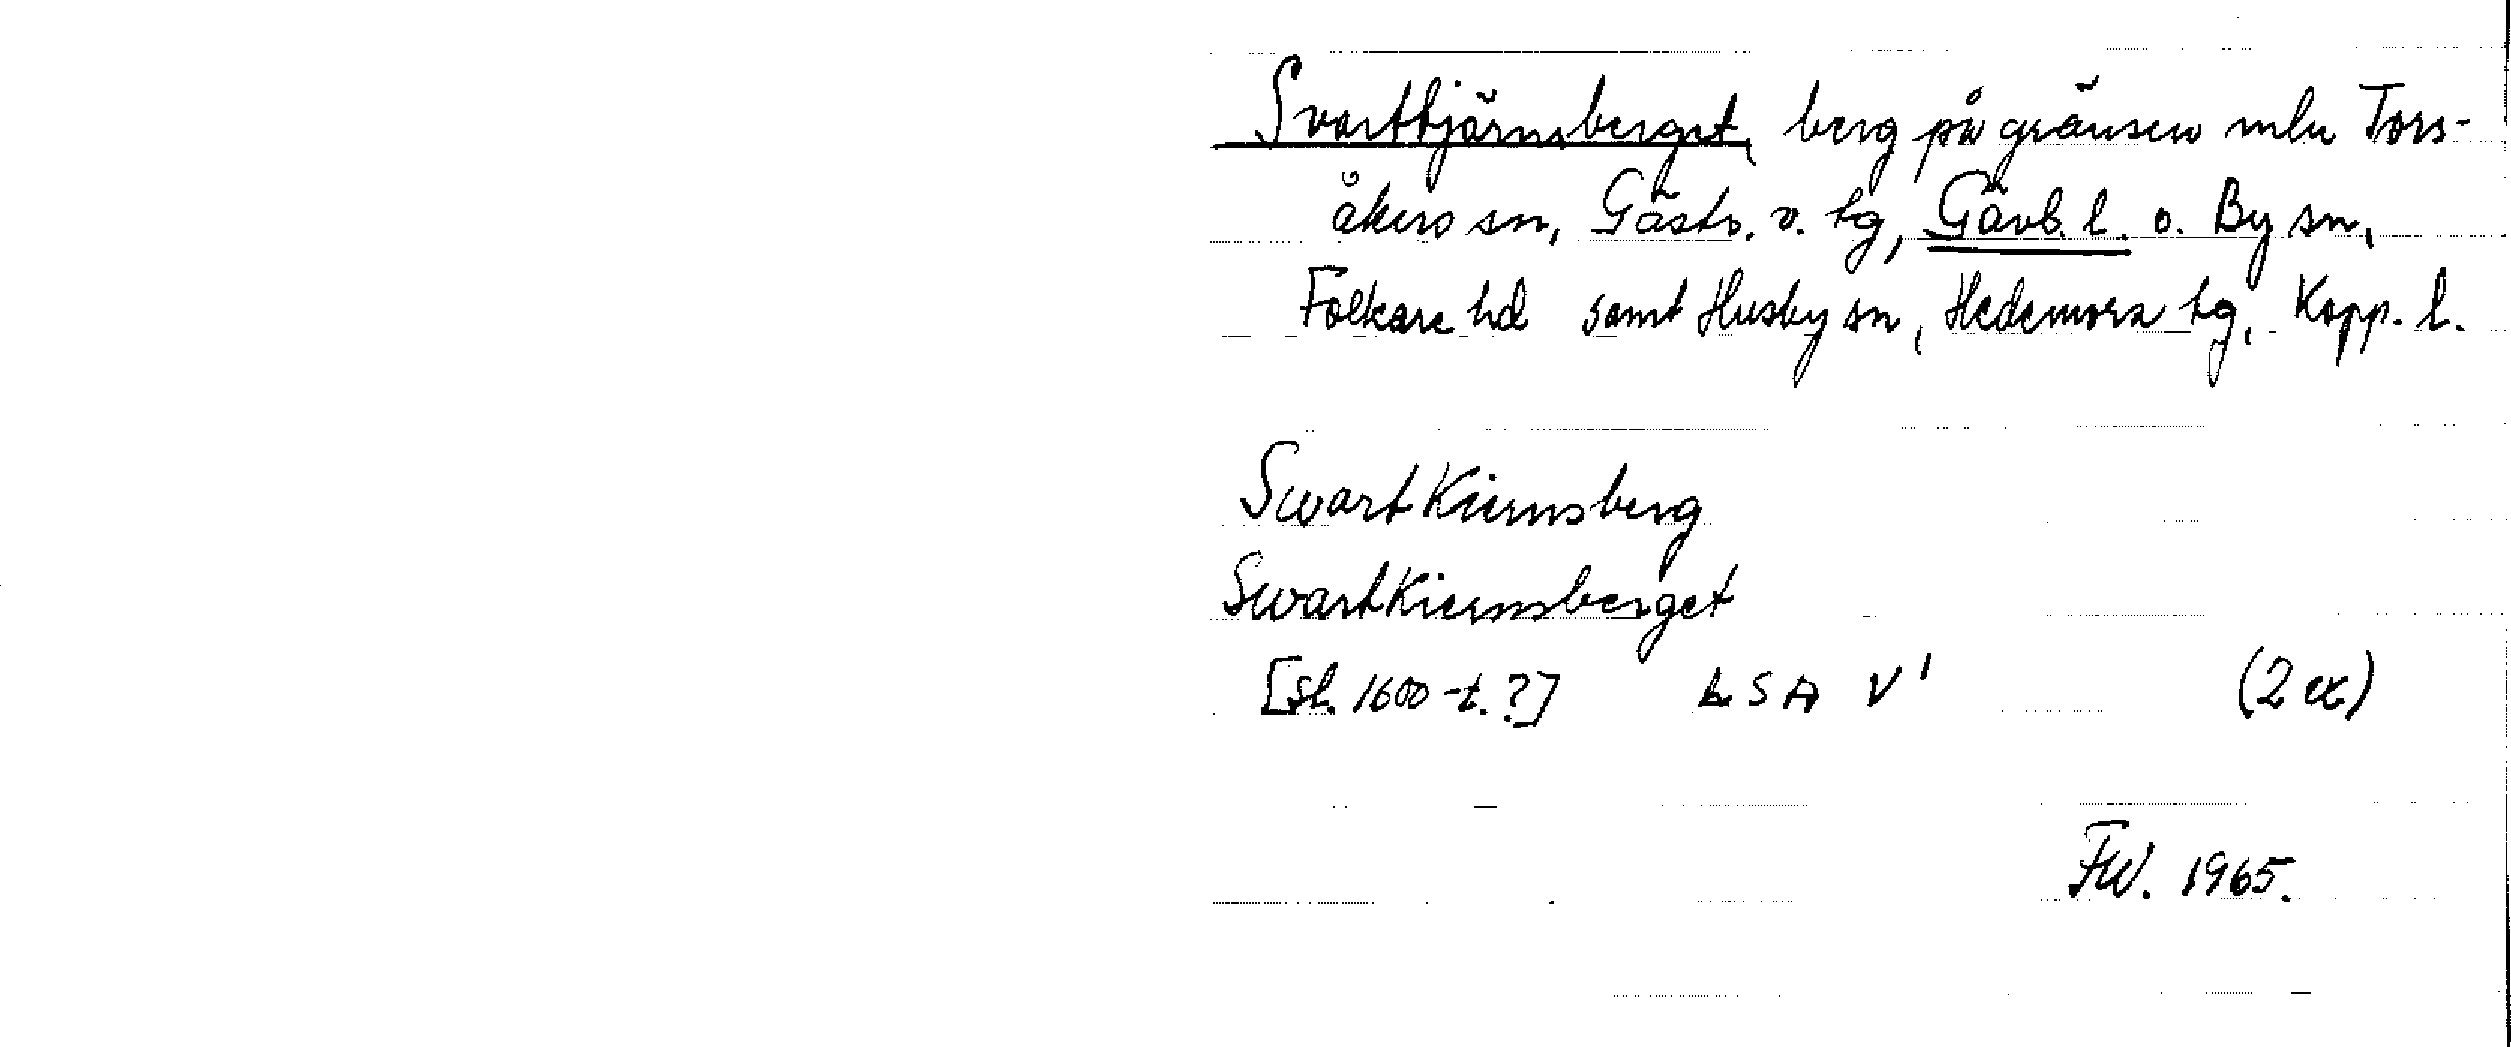 Svarttjärnsberget, berg på gränsen mln Tors-
åkers sn, Gästr. v. tg, Gävb. l. o. By sn,
Folkare hd samt Husby sn, Hedemora tg, Kopp. l.
SwartKiernsberg
SwartKiernsberget
[sl. 1600-t. ?] LSA V¹ (2 ex)
FW. 1965.